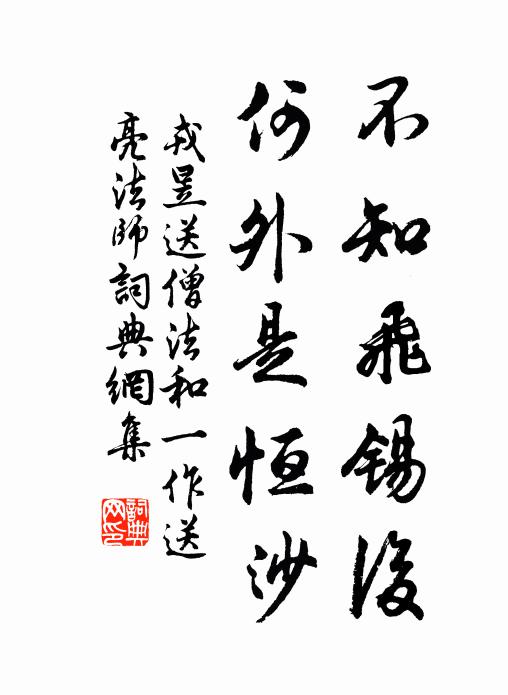 不知飛錫後
何外是恒沙
戎昱送僧法和一作送
亮法師詞典網集
詞典网印